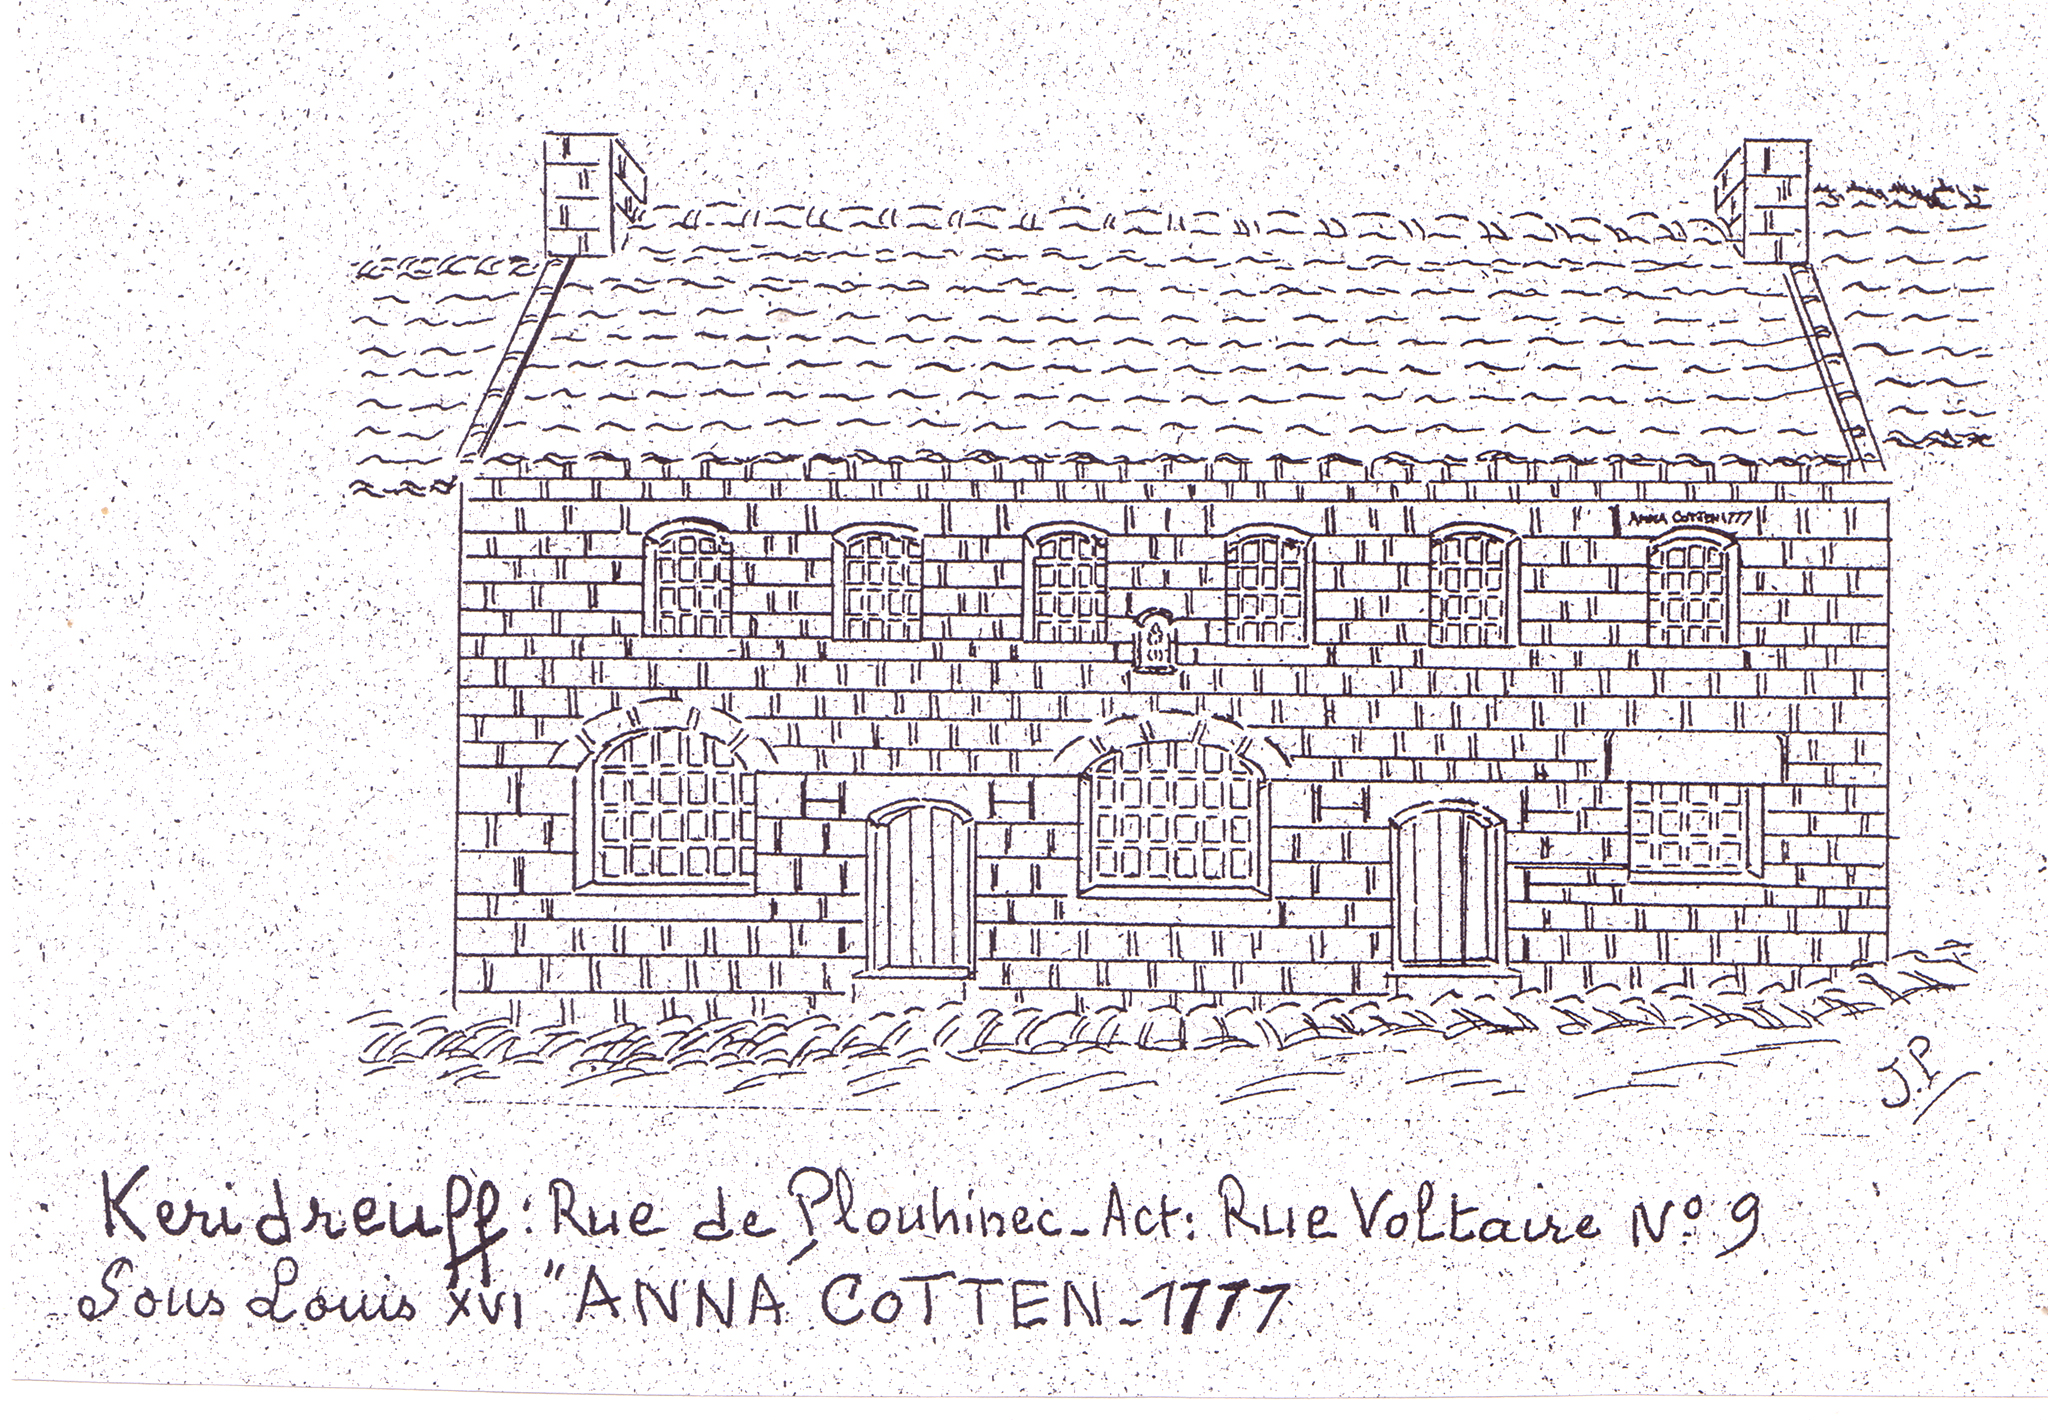 ANNA COTTEN 1777
J.P
Keridreuff : Rue de Plouhinec - Act : Rue Voltaire N° 9
Sous Louis XVI "ANNA COTTEN - 1777